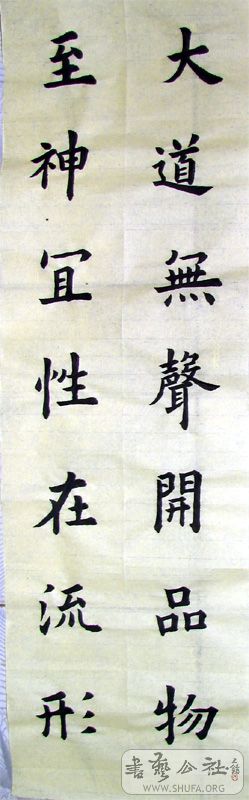 大道無聲開品物
至神冝性在流形
書藝公社
WWW.SHUFA.ORG